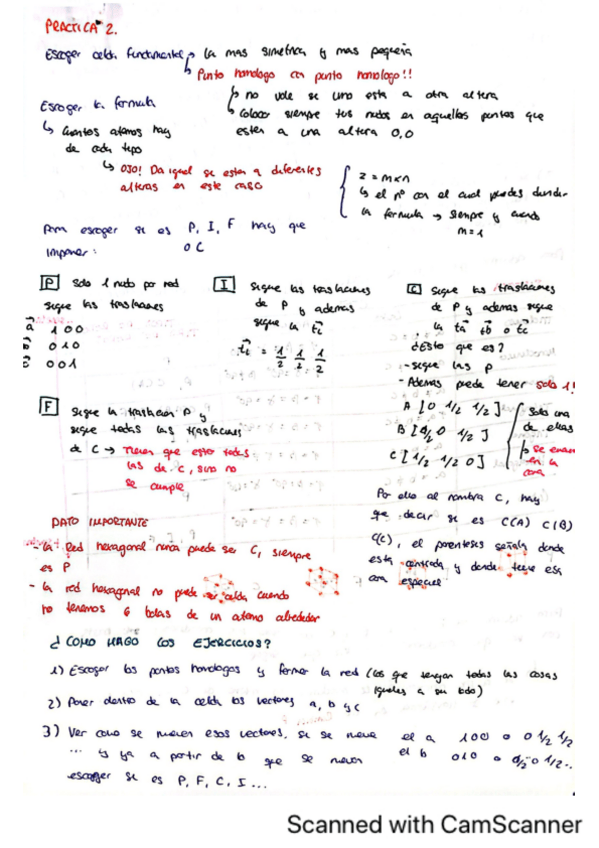 PRACTICA 2.
Escoger celda fundamental → la mas simetrica y mas pequeña
↳ Punto homologo con punto homologo!!
↳ no vale si uno esta a otra altura
↳ Coloca siempre tus nudos en aquellos puntos que
esten a una altura 0,0
Escoger la formula
↳ Cuantos atomos hay
de cada tipo
↳ OJO! Da igual si estan a diferentes
alturas en este caso
z = m × n
↳ el nº con el cual puedes dividir
la formula → siempre y cuando
m = 1
Para escoger si es P, I, F hay que
imponer: o C
P Solo 1 nudo por red
sigue las traslaciones
a 1 0 0
b 0 1 0
c 0 0 1
I Sigue las traslaciones
de P y ademas
sigue la ti
ti = 1/2 1/2 1/2
C Sigue las traslaciones
de P y ademas sigue
la ta tb o tc
¿Esto que es?
- Sigue las P
- Ademas puede tener solo 1!
A [0 1/2 1/2]
B [1/2 0 1/2]
C [1/2 1/2 0]
Solo una
de ellas
↳ se
en la
cara
F Sigue la traslacion P y
sigue todas las traslaciones
de C → Tienen que estar todas
las de C, sino no
se cumple
Por ello al nombrar C, hay
que decir si es C(A) C(B)
C(C), el parentesis señala donde
esta centrada y donde tiene esa
cara especial
DATO IMPORTANTE
- La Red hexagonal nunca puede ser C, siempre
es P
- La red hexagonal no puede ser celda cuando
no tenemos 6 bolas de un atomo alrededor
¿COMO HAGO LOS EJERCICIOS?
1) Escoger los puntos homologos y formar la red (los que tengan todas las cosas
iguales a su lado)
2) Poner dentro de la celda los vectores a, b y c
3) Ver como se mueven esos vectores, si se mueve el a 1 0 0 o 0 1/2 1/2
... y ya a partir de lo que se mueven el b 0 1 0 o 1/2 0 1/2...
escoger si es P, F, C, I ...
Scanned with CamScanner